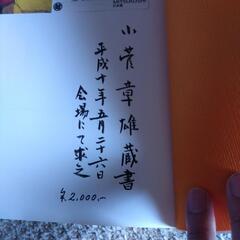 小菅章雄蔵書
平成十年五月二十六日
会場にて求之
¥2,000,-